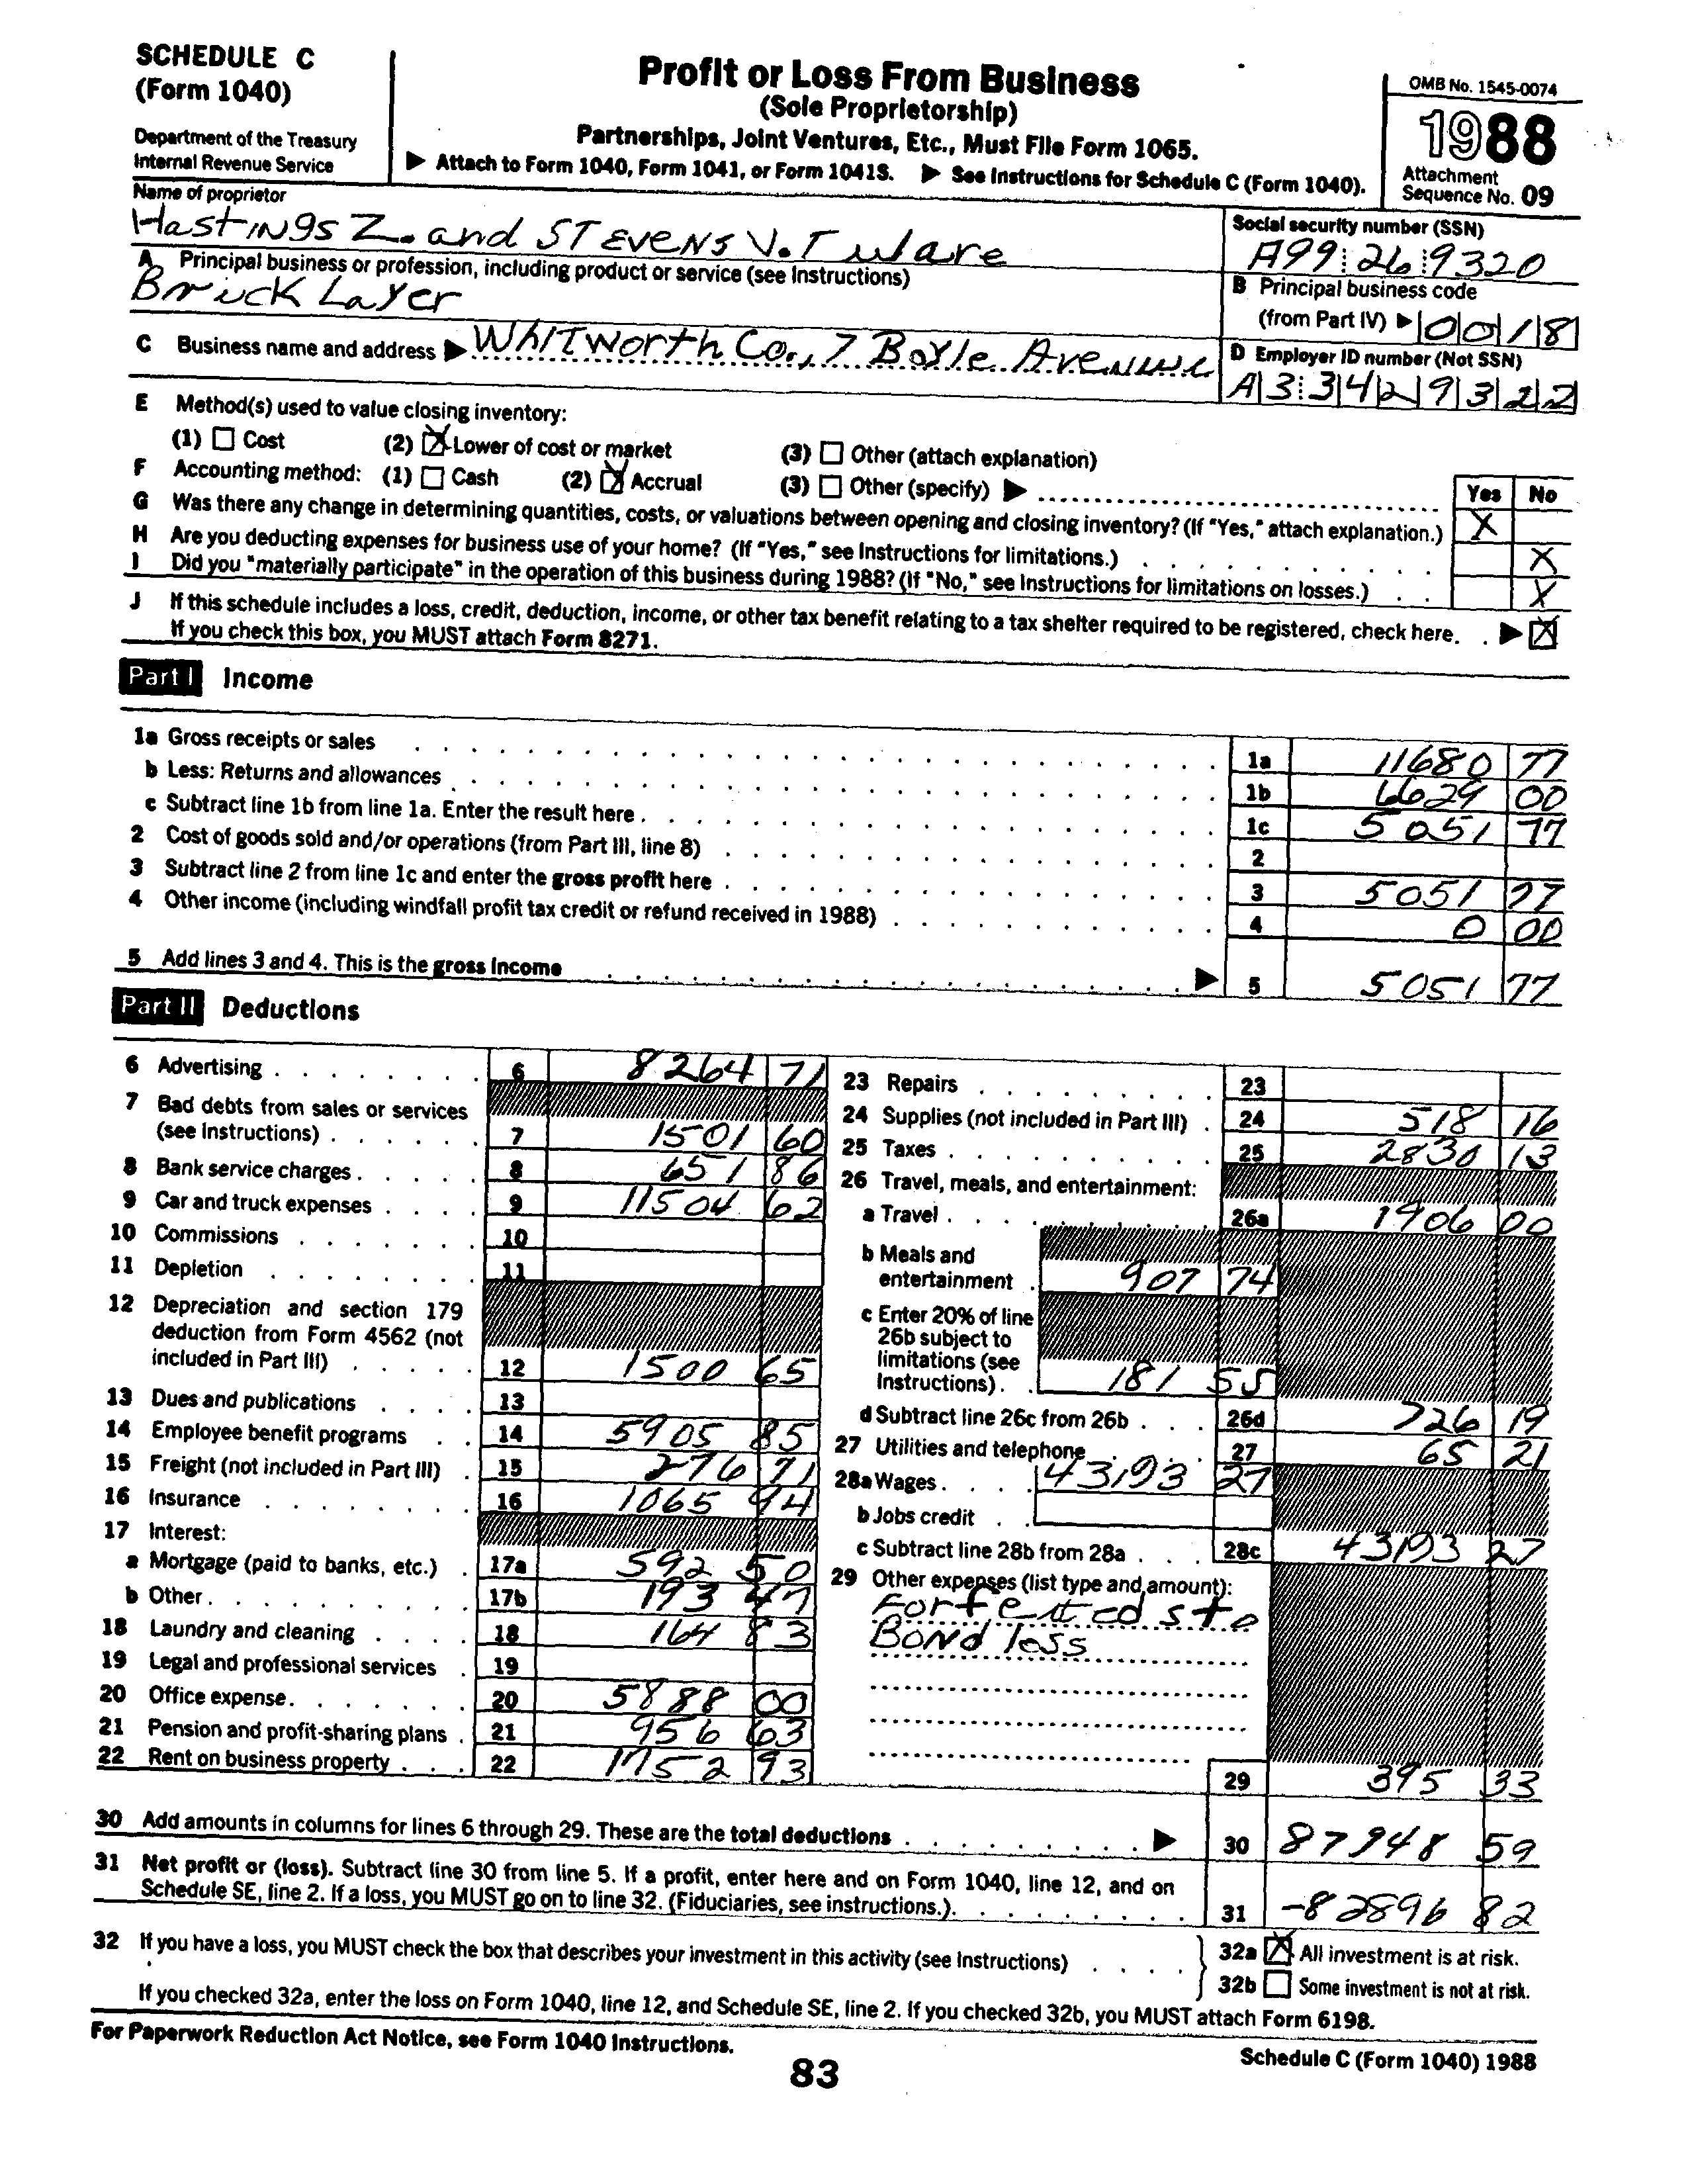 SCHEDULE C
(Form 1040)
Department of the Treasury
Internal Revenue Service
Profit or Loss From Business
(Sole Proprietorship)
Partnerships, Joint Ventures, Etc., Must File Form 1065.
▶ Attach to Form 1040, Form 1041, or Form 1041S. ▶ See Instructions for Schedule C (Form 1040).
OMB No. 1545-0074
1988
Attachment
Sequence No. 09
Name of proprietor
Hastings Z. and STEVENS V. Tulare
Social security number (SSN)
A99 26 9320
A Principal business or profession, including product or service (see Instructions)
Brick Layer
B Principal business code
(from Part IV) ▶ 0018
C Business name and address ▶ Whitworth Co., 7 Boyle Avenue
D Employer ID number (Not SSN)
A3 3429322
E Method(s) used to value closing inventory:
(1) ☐ Cost (2) ☒ Lower of cost or market (3) ☐ Other (attach explanation)
F Accounting method: (1) ☐ Cash (2) ☒ Accrual (3) ☐ Other (specify) ▶
Yes No
G Was there any change in determining quantities, costs, or valuations between opening and closing inventory? (If "Yes," attach explanation.) X
H Are you deducting expenses for business use of your home? (If "Yes," see Instructions for limitations.) X
I Did you "materially participate" in the operation of this business during 1988? (If "No," see Instructions for limitations on losses.) X
J If this schedule includes a loss, credit, deduction, income, or other tax benefit relating to a tax shelter required to be registered, check here. ▶ ☒
If you check this box, you MUST attach Form 8271.
Part I Income
1a Gross receipts or sales 1a 11680 77
b Less: Returns and allowances 1b 6629 00
c Subtract line 1b from line 1a. Enter the result here 1c 5051 77
2 Cost of goods sold and/or operations (from Part III, line 8) 2
3 Subtract line 2 from line 1c and enter the gross profit here 3 5051 77
4 Other income (including windfall profit tax credit or refund received in 1988) 4 0 00
5 Add lines 3 and 4. This is the gross income ▶ 5 5051 77
Part II Deductions
6 Advertising 6 8264 71
7 Bad debts from sales or services
(see Instructions) 7 1501 60
8 Bank service charges 8 651 86
9 Car and truck expenses 9 11504 62
10 Commissions 10
11 Depletion 11
12 Depreciation and section 179
deduction from Form 4562 (not
included in Part III) 12 1500 65
13 Dues and publications 13
14 Employee benefit programs 14 5905 85
15 Freight (not included in Part III) 15 276 71
16 Insurance 16 1065 94
17 Interest:
a Mortgage (paid to banks, etc.) 17a 592 50
b Other 17b 193 47
18 Laundry and cleaning 18 164 83
19 Legal and professional services 19
20 Office expense 20 5888 00
21 Pension and profit-sharing plans 21 956 63
22 Rent on business property 22 1752 93
23 Repairs 23
24 Supplies (not included in Part III) 24 518 16
25 Taxes 25 2830 13
26 Travel, meals, and entertainment:
a Travel 26a 1906 00
b Meals and
entertainment 907 74
c Enter 20% of line
26b subject to
limitations (see
Instructions) 181 55
d Subtract line 26c from 26b 26d 726 19
27 Utilities and telephone 27 65 21
28a Wages 43193 27
b Jobs credit
c Subtract line 28b from 28a 28c 43193 27
29 Other expenses (list type and amount):
Bond loss
29 395 33
30 Add amounts in columns for lines 6 through 29. These are the total deductions ▶ 30 87948 59
31 Net profit or (loss). Subtract line 30 from line 5. If a profit, enter here and on Form 1040, line 12, and on
Schedule SE, line 2. If a loss, you MUST go on to line 32. (Fiduciaries, see instructions.) 31 -82896 82
32 If you have a loss, you MUST check the box that describes your investment in this activity (see Instructions)
32a ☒ All investment is at risk.
32b ☐ Some investment is not at risk.
If you checked 32a, enter the loss on Form 1040, line 12, and Schedule SE, line 2. If you checked 32b, you MUST attach Form 6198.
For Paperwork Reduction Act Notice, see Form 1040 Instructions.
Schedule C (Form 1040) 1988
83